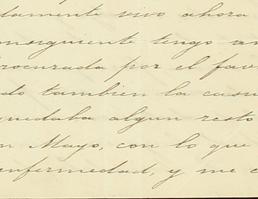 damente vivo ahora
onsiguiente tengo un
procurada por el fav
do tambien la casu
quedaba algun resto
n Mayo, con lo que
enfermedad, y me c